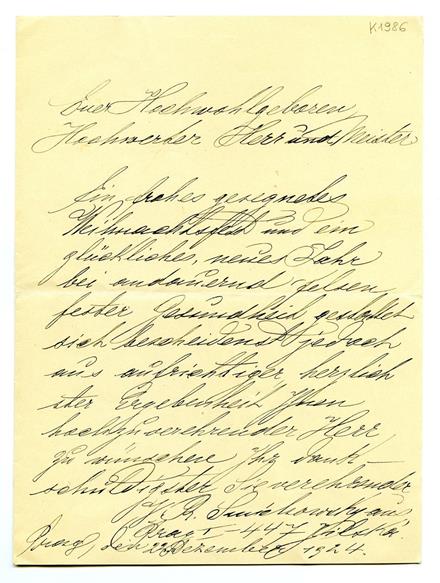 K1986
Euer Hochwohlgeboren,
Hochwerter Herr und Meister
Ein frohes gesegnetes
Weihnachtsfest und ein
glückliches, neues Jahr
bei andauernd felsen
fester Gesundheit gestattet
sich bescheidenst jedoch
aus aufrichtiger, herzlich
ster Ergebenheit, Ihnen
hochzuverehrender Herr
zu wünschen Ihr dank-
schuldigster Sie verehrender
aus
Prag I – 447 Jilská.
Prag, den 22 Dezember 1924.